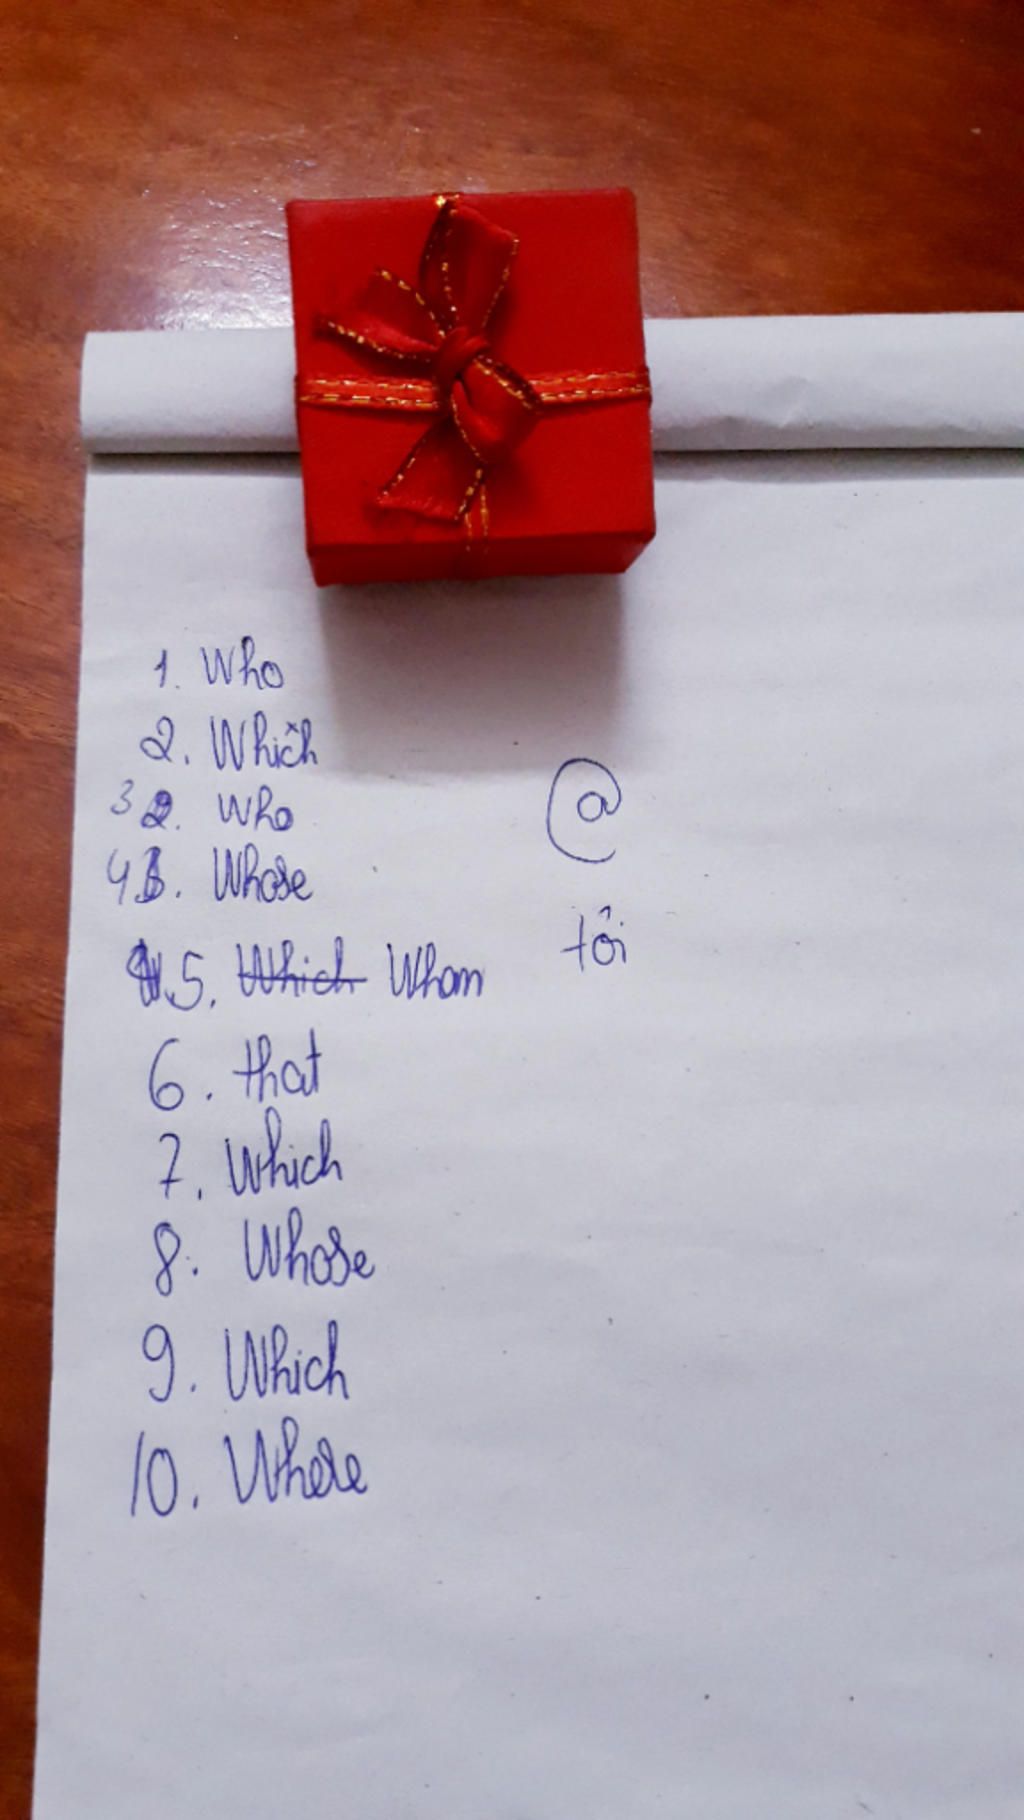 1. Who
2. Which
3. Who
4. Whose
5. Which Whom
6. that
7. Which
8. Whose
9. Which
10. Where
@
tôi